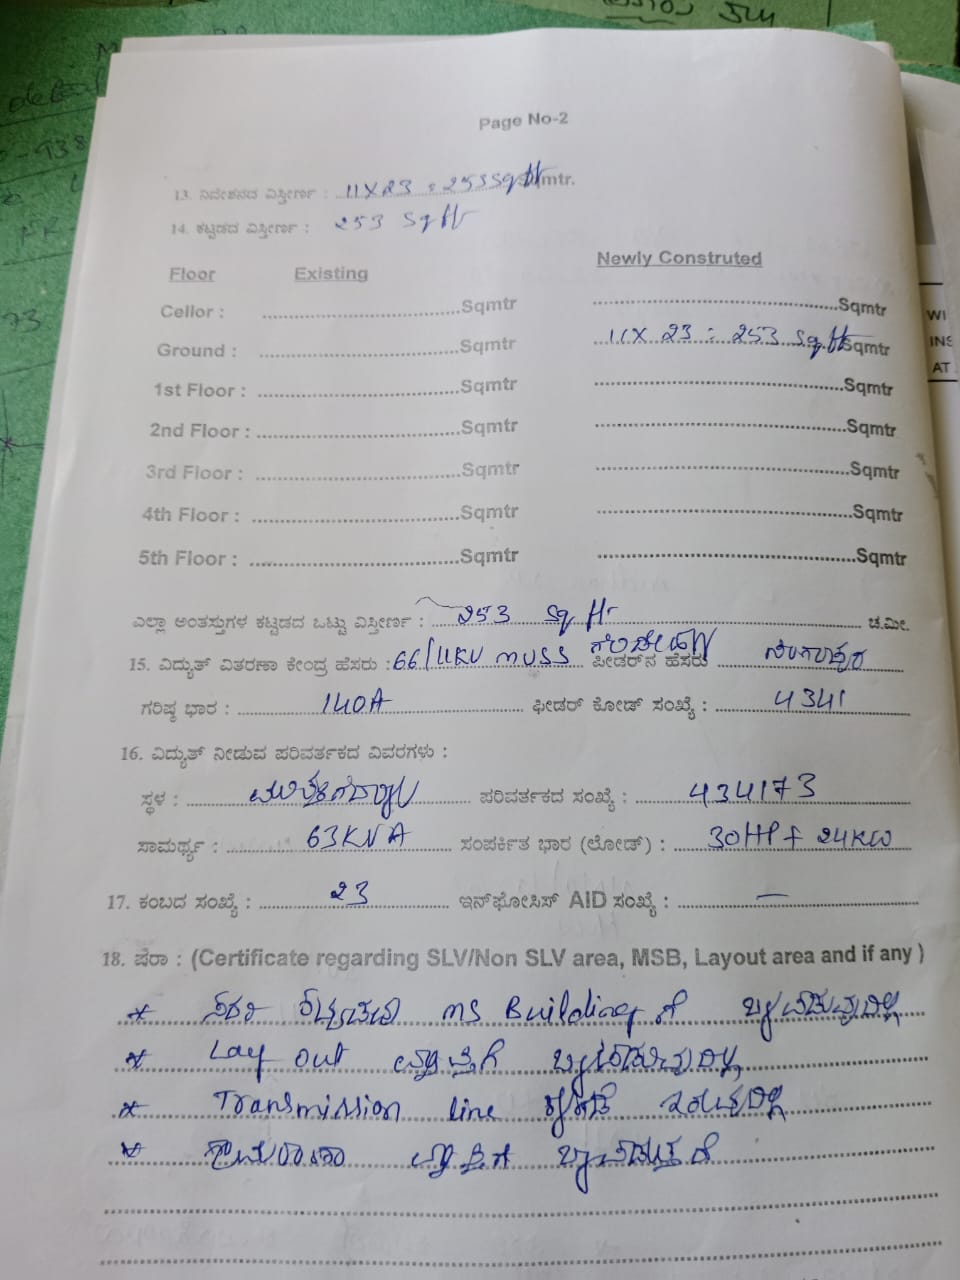 Page No-2
13. ನಿವೇಶನದ ವಿಸ್ತೀರ್ಣ : 11 X 23 = 253 Sq ft Sqmtr.
14. ಕಟ್ಟಡದ ವಿಸ್ತೀರ್ಣ : 253 Sq ft
Floor Existing Newly Construted
Cellor : Sqmtr Sqmtr
Ground : Sqmtr 11X 23 = 253 Sq ft Sqmtr
1st Floor : Sqmtr Sqmtr
2nd Floor : Sqmtr Sqmtr
3rd Floor : Sqmtr Sqmtr
4th Floor : Sqmtr Sqmtr
5th Floor : Sqmtr Sqmtr
ಎಲ್ಲಾ ಅಂತಸ್ತುಗಳ ಕಟ್ಟಡದ ಒಟ್ಟು ವಿಸ್ತೀರ್ಣ : 253 Sq ft ಚ.ಮೀ.
15. ವಿದ್ಯುತ್ ವಿತರಣಾ ಕೇಂದ್ರ ಹೆಸರು : 66/11KV MUSS ಫೀಡರ್‌ನ ಹೆಸರು
ಗರಿಷ್ಠ ಭಾರ : 140A ಫೀಡರ್ ಕೋಡ್ ಸಂಖ್ಯೆ : 4341
16. ವಿದ್ಯುತ್ ನೀಡುವ ಪರಿವರ್ತಕದ ವಿವರಗಳು :
ಸ್ಥಳ : ಪರಿವರ್ತಕದ ಸಂಖ್ಯೆ : 434173
ಸಾಮರ್ಥ್ಯ : 63KVA ಸಂಪರ್ಕಿತ ಭಾರ (ಲೋಡ್) : 30HP + 24KW
17. ಕಂಬದ ಸಂಖ್ಯೆ : 23 ಇನ್‌ಫೋಸಿಸ್ AID ಸಂಖ್ಯೆ : —
18. ಷರಾ : (Certificate regarding SLV/Non SLV area, MSB, Layout area and if any )
* ಸದರಿ MS Building ಗೆ ಒಳಪಡುವುದಿಲ್ಲ
* Lay out ವ್ಯಾಪ್ತಿಗೆ ಒಳಪಡುವುದಿಲ್ಲ
* Transmission line ಇರುವುದಿಲ್ಲ
* ವ್ಯಾಪ್ತಿಗೆ ಒಳಪಡುತ್ತದೆ